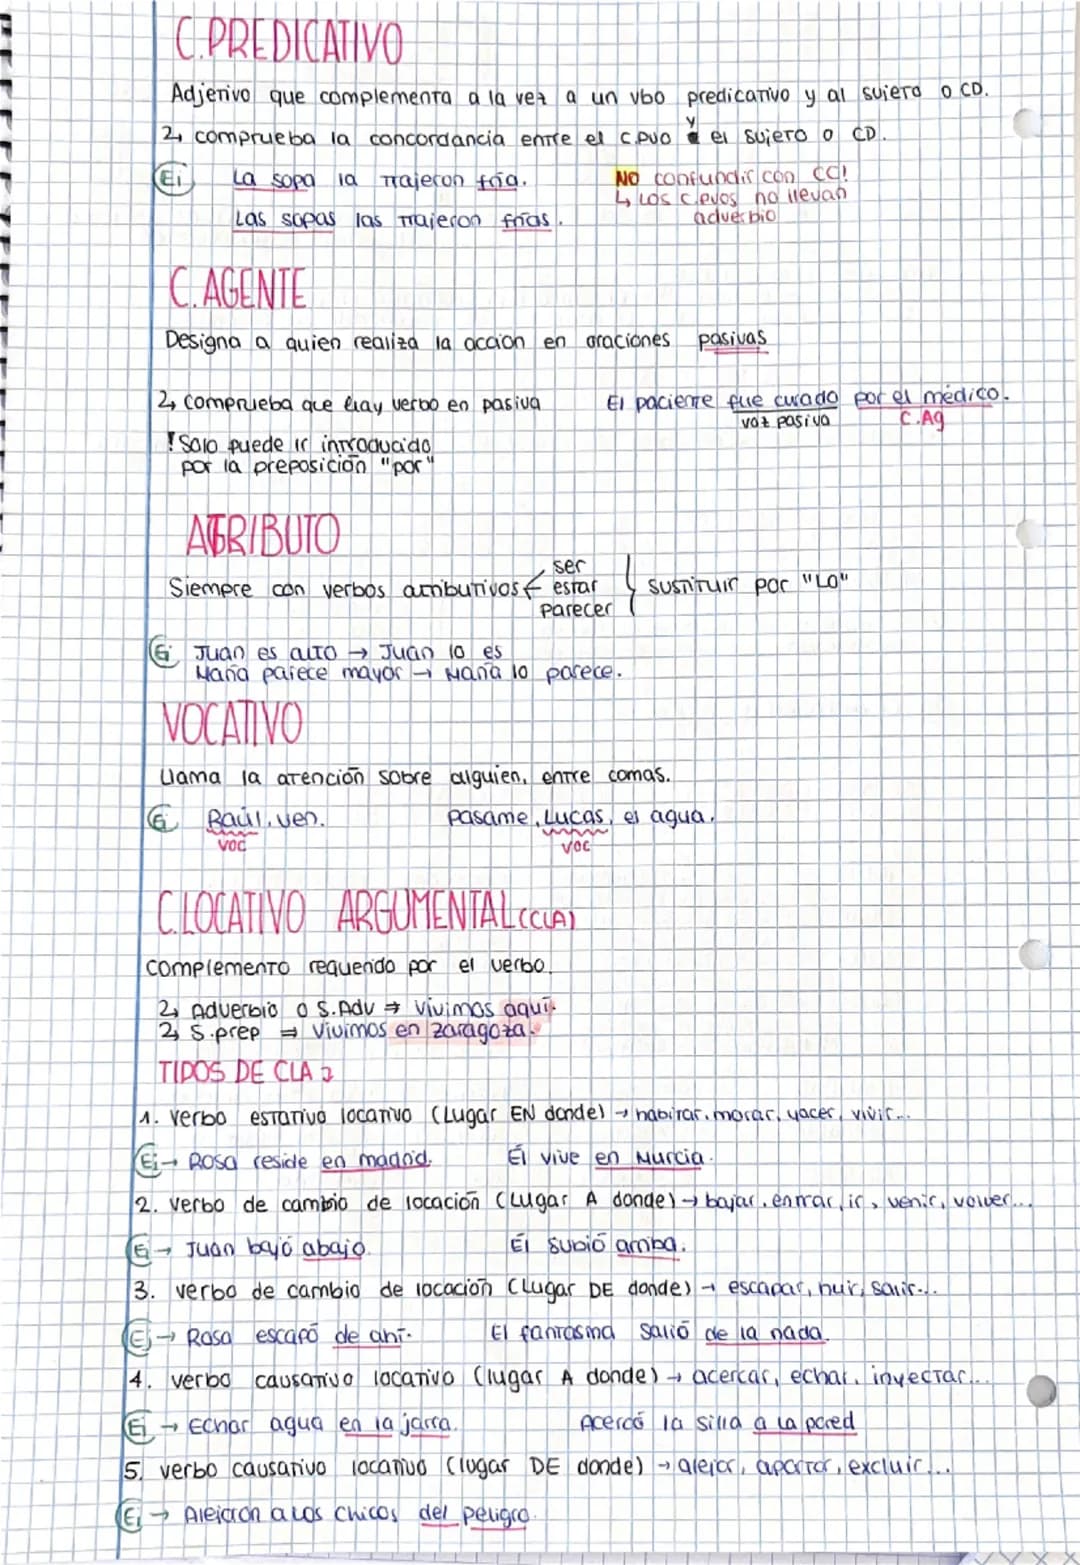 C.PREDICATIVO
Adjetivo que complementa a la vez a un vbo predicativo y al sujeto o CD.
↳ comprueba la concordancia entre el c.pvo y el sujeto o CD.
Ej La sopa la trajeron fría. NO confundir con CC!
↳ Los c.pvos no llevan
Las sopas las trajeron frías. adverbio
C.AGENTE
Designa a quien realiza la acción en oraciones pasivas
↳ comprueba que hay verbo en pasiva El paciente fue curado por el médico.
voz pasiva C.Ag
! Solo puede ir introducido
por la preposición "por"
ATRIBUTO
Siempre con verbos atributivos ser
estar
parecer
sustituir por "LO"
Ej Juan es alto → Juan lo es
María parece mayor → María lo parece.
VOCATIVO
Llama la atención sobre alguien, entre comas.
Ej Raúl, ven. Pasame, Lucas, el agua.
voc voc
C.LOCATIVO ARGUMENTAL (CLA)
complemento requerido por el verbo.
↳ Adverbio o S.Adv ⇒ Vivimos aquí.
↳ S.prep ⇒ Vivimos en zaragoza.
TIPOS DE CLA ↴
1. verbo estativo locativo (Lugar EN donde) → habitar, morar, yacer, vivir...
Ej → Rosa reside en madrid. Él vive en Murcia.
2. verbo de cambio de locación (Lugar A donde) → bajar, entrar, ir, venir, volver...
Ej → Juan bajó abajo. Él subió arriba.
3. verbo de cambio de locación (Lugar DE donde) → escapar, huir, salir...
Ej → Rosa escapó de ahí. El fantasma salió de la nada.
4. verbo causativo locativo (lugar A donde) → acercar, echar, inyectar...
Ej → Echar agua en la jarra. Acercó la silla a la pared
5. verbo causativo locativo (lugar DE donde) → alejar, apartar, excluir...
Ej → Alejaron a los chicos del peligro.